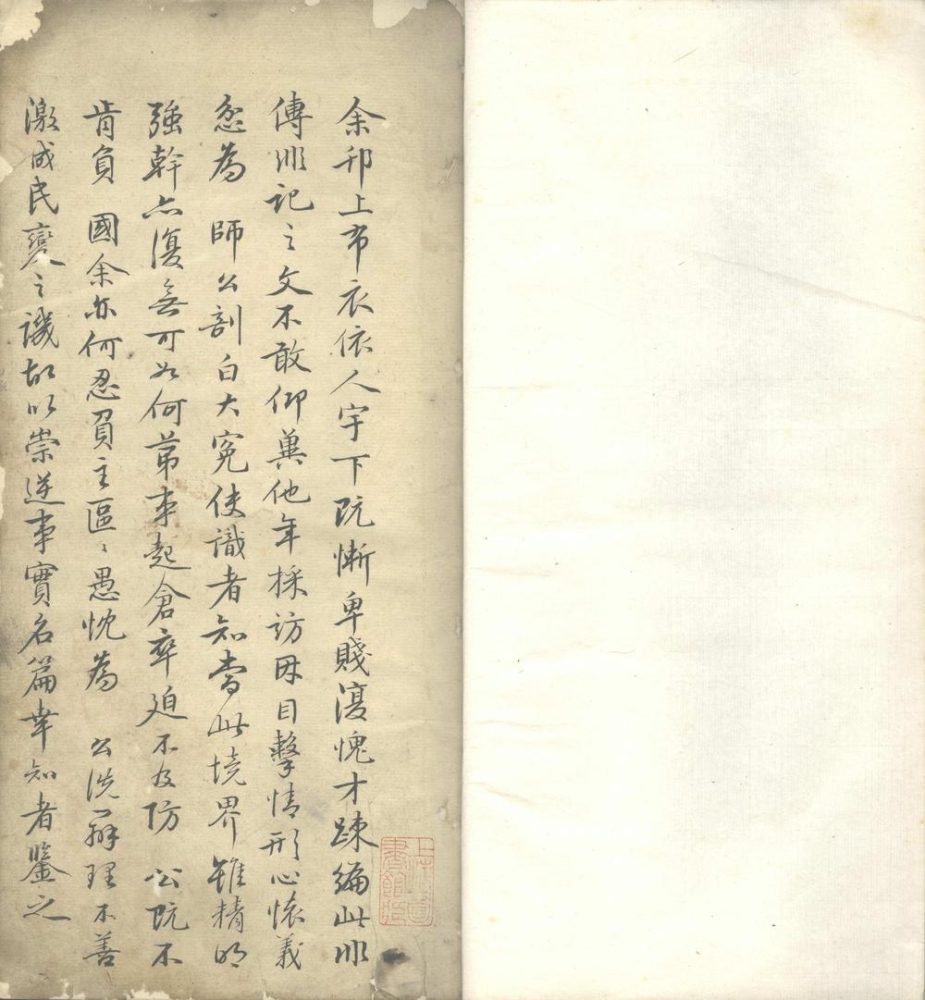 余邗上布衣依人宇下既慚卑賤復愧才疎編此非
傳非記之文不敢仰冀他年採訪因目擊情形心懷義
忿為 師公剖白大冤使識者知當此境界雖精明
強幹亦復無可如何第事起倉卒迫不及防 公既不
肯負 國余亦何忍負主區〻愚忱為 公洗辦理不善
激成民變之譏故以崇逆事實名篇幸知者鑒之
上海圖書館藏